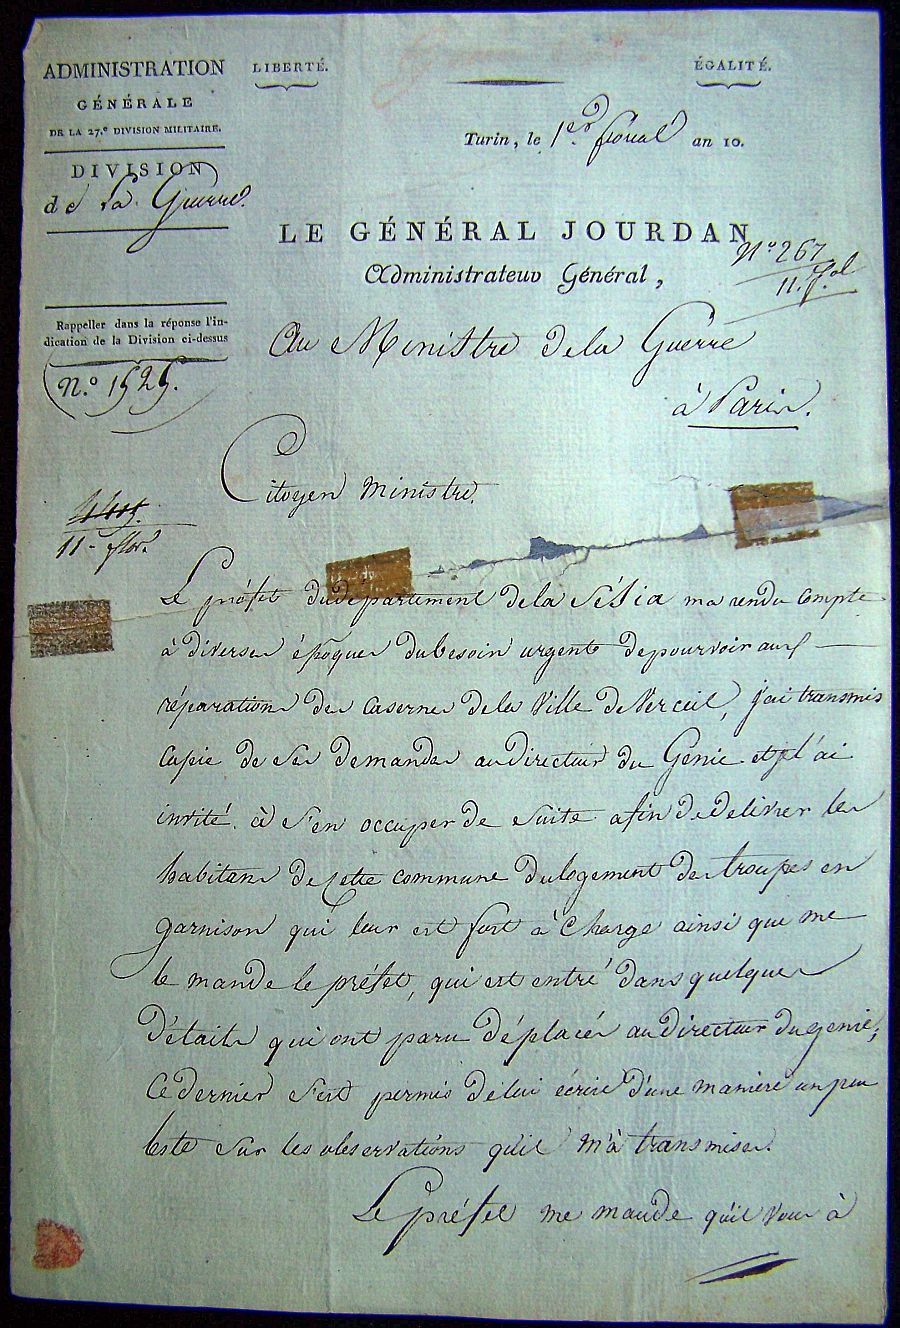 ADMINISTRATION
GÉNÉRALE
DE LA 27.e DIVISION MILITAIRE.
DIVISION
de La Guerre.
LIBERTÉ.
ÉGALITÉ.
Turin, le 1er. floréal an 10.
LE GÉNÉRAL JOURDAN
Administrateur Général,
N° 267
11. f.al
Rappeller dans la réponse l'in-
dication de la Division ci-dessus
N.° 1525.
Au Ministre de la Guerre
à Paris.
Citoyen Ministre.
11 - flor.
Le préfet du département de la Sésia ma rendu compte
à diverses époques du besoin urgent de pourvoir aux
réparations des casernes de la Ville de Verceil, j'ai transmis
copie de ses demandes au Directeur du Genie et je l'ai
invité à s'en occuper de suite afin de delivrer les
habitans de Cette commune du logement des troupes en
garnison qui leur est fort à Charge ainsi que me
le mande le préfet, qui est entré dans quelques
Détails qui ont paru déplacés au Directeur du genie,
Ce dernier s'est permis de lui écrire d'une maniere un peu
leste sur les observations qu'il m'à transmises.
Le préfet me mande qu'il vous à